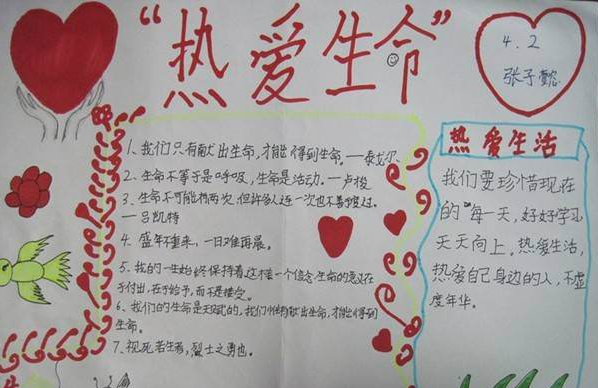 “热爱生命”
4.2
张子懿
1、我们只有献出生命，才能得到生命。——泰戈尔
2、生命不等于是呼吸，生命是活动。—卢梭
3、生命不可能有两次，但许多人连一次也不善度过。
—吕凯特
4、盛年不重来，一日难再晨。
5、我的一生始终保持着这样一个信念：生命的意义在
于付出，在于给予，而不是接受。
6、我们的生命是天赋的，我们惟有献出生命，才能得到
生命。
7、视死若生者，烈士之勇也。
热爱生活
我们要珍惜现在
的每一天，好好学习
天天向上。热爱生活，
热爱自己身边的人，不虚
度年华。